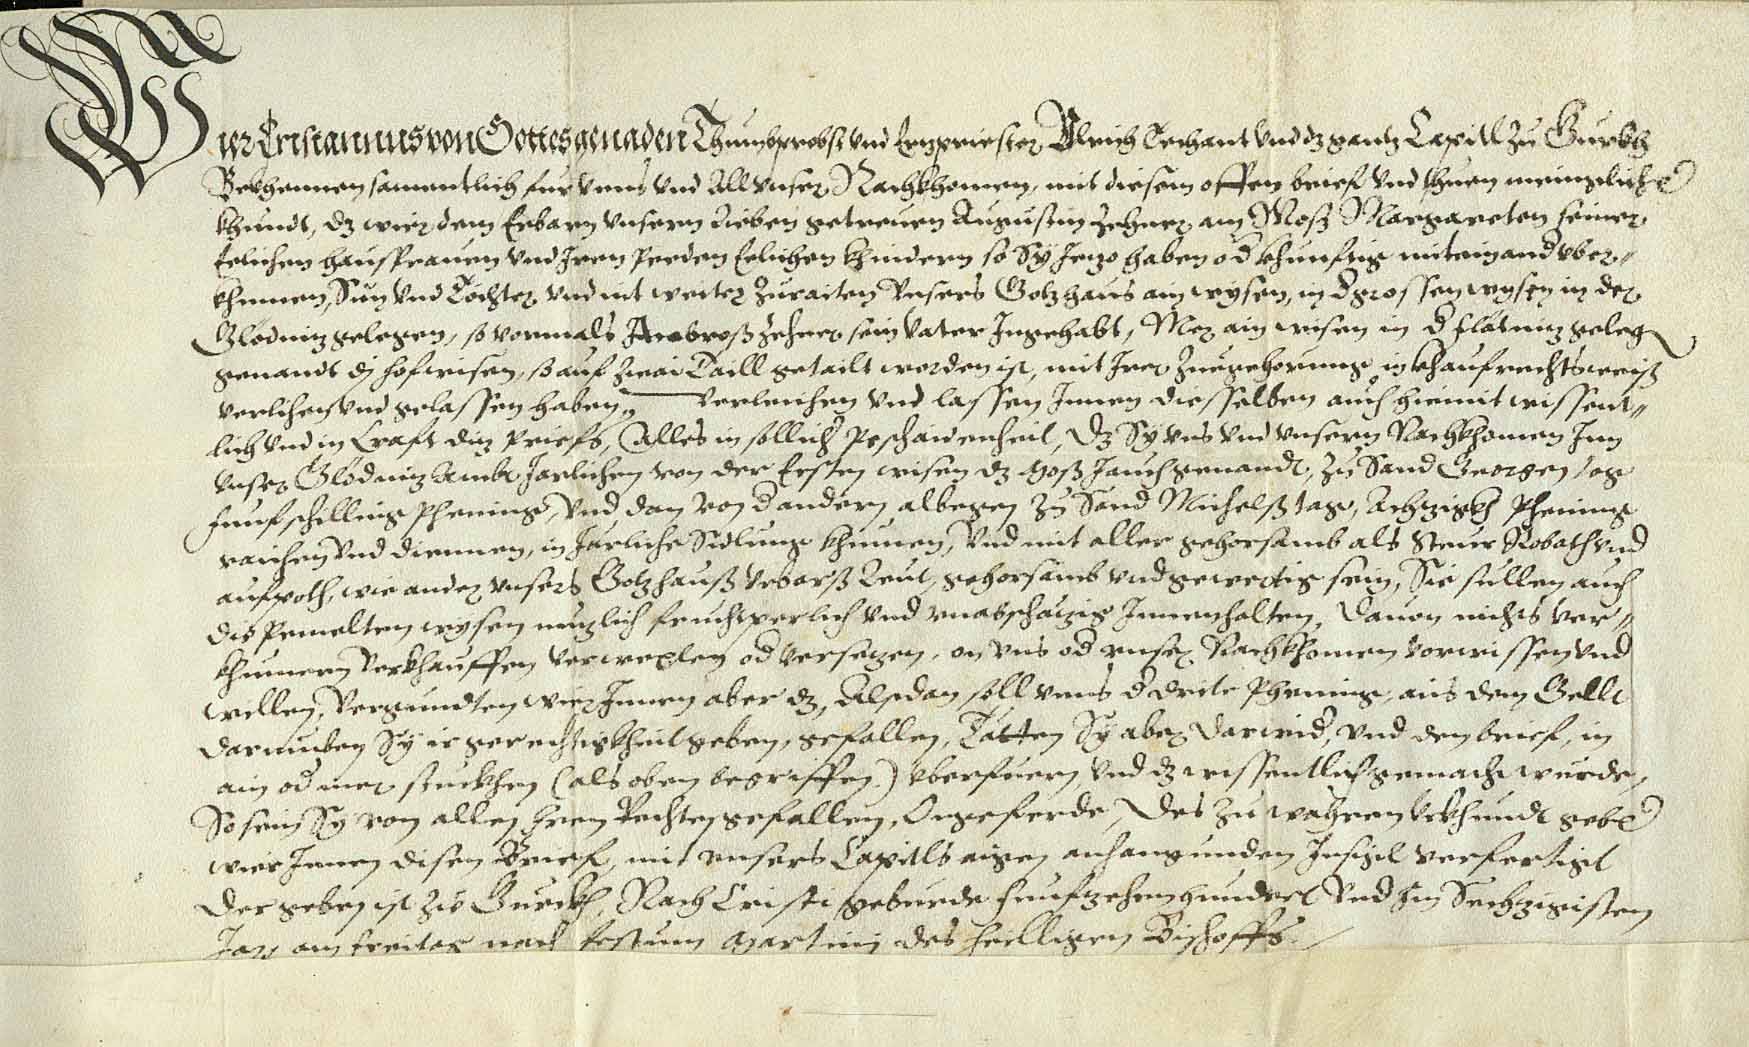 Wier Cristannus von Gottes genaden Thumbprobst vnd Ertzpriester Vlrich Techant vnd dz gantz Capitl zu Gurkh
Bekhennen samentlich für vnns vnd All vnser Nachkhomen, mit diesem offen brief vnd thuen menigelichn
khundt, dz wier dem Erbarn vnserm Lieben getreuen Augustin Zehner am Moß Margareten seiner
Eelichen hausfrauen vnd Iren peeden Eelichen khindern so Sy Jetzo haben od khunftig miteinand vber-
khumen, Sun vnd Töchter vnd nit weiter zuraiten vnsers Gotzhaus ain wysen, in d grossen wysen in der
Glödnitz gelegen, so vormals Ambroß Zehner sein Vater Ingehabt, Mer ain wisen in d Flätnitz geleg
genandt dj hofwisen, so auf zwai Taill getailt worden ist, mit Irer zuegehorung in khaufrechtsweiß
verlichen vnd gelassen haben, verleichen vnd lassen Innen dieselben auch hiemit wissent-
lich vnd in Craft ditz Briefs, Alles in sollicher Beschaidenheit, Dz Sy vns vnd vnsern Nachkhomen Inn
vnser Glödnitz Ambt Järlichen von der Ersten wisen dz groß Jauch genandt, zu Sand Georgen tag
funf schilling phening, vnd dan von d andern albegen zu Sand Michelß tag, Achtzigkh Phening
raichen vnd diennen, in Järliche Stiftung khumen, vnd mit aller gehorsamb als Steur Robath vnd
aufpoth, wie ander vnsers Gotzhauß vrbarß Leut, gehorsamb vnd gewertig sein, Sie sullen auch
die bemelten wysen nutzlich fruchtperlich vnd vnabschätzig Innenhalten, dauon nichts ver-
khumern verkhauffen verwexlen od versetzen, on vns od vnser Nachkhomen vorwissen vnd
willen, Vergundten wier Innen aber dz, Alsdan soll vnns d drite Phening, aus dem Gellt
darumben Sy ir gerechtigkheit geben, gefallen, Tätten Sy aber darwid, vnd den brief, in
ain od mer stuckhen (als oben begriffen) vberfuern, vnd dz wissentlich gemacht wurde,
So seint Sy von allen Irem Rechten gefallen, Ongeferde, Des zu wahrem Vrkhundt geben
wier Innen disen Brief, mit vnsers Capitls aigen anhangunden Insigl verfertigt
Der geben ist zu Gurckh, Nach Cristi geburde funfzehenhundert vnd Im Sechtzigisten
Jar, am freitag nach festum Martinj des heilligen Bischoffs.